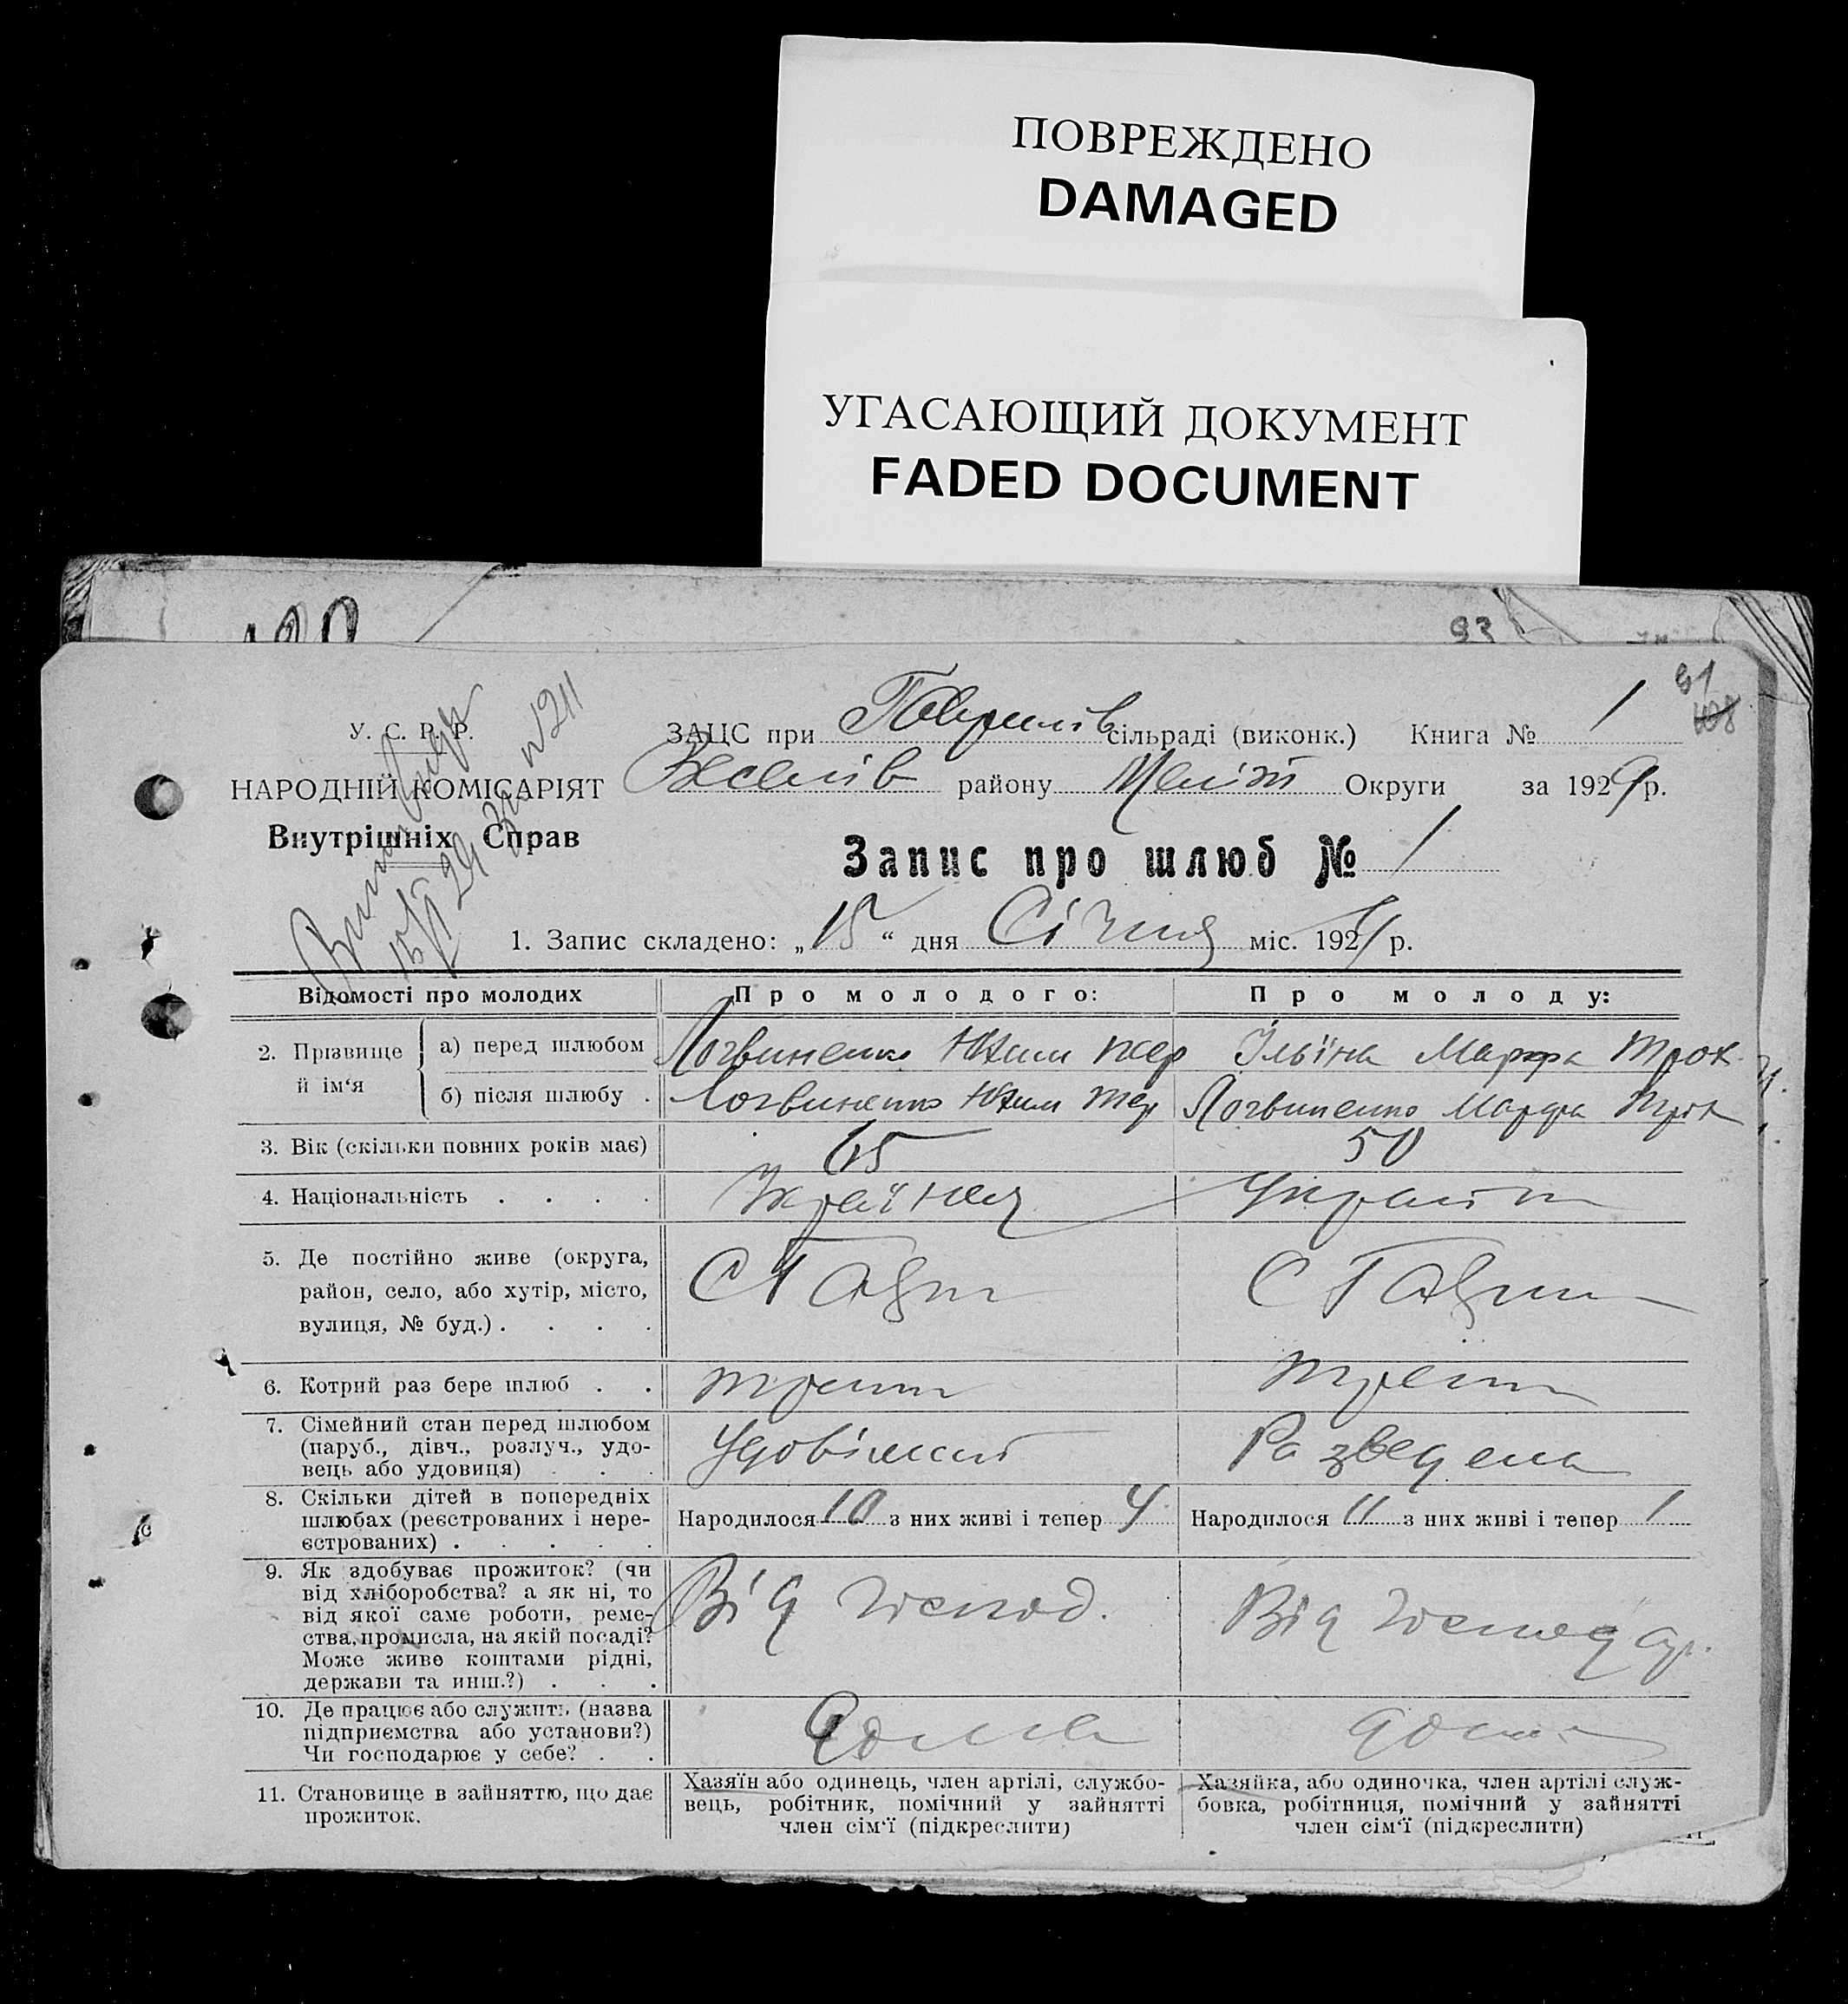 ПОВРЕЖДЕНО
DAMAGED
УГАСАЮЩИЙ ДОКУМЕНТ
FADED DOCUMENT
93
91
108
У. С. Р. Р.
НАРОДНІЙ КОМІСАРІЯТ
Внутрішніх Справ
ЗАЦС при Гаврилів сільраді (виконк.) Книга № 1
Веселів району Меліт Округи за 1929 р.
Запис про шлюб № 1
1. Запис складено: „15“ дня Січня міс. 1929 р.
Відомості про молодих Про молодого: Про молоду:
2. Прізвище й ім‘я
а) перед шлюбом Логвиненко Юхим Ільїна Марфа Трох
б) після шлюбу . Логвиненко Юхим Логвиненко Марфа Трох
3. Вік (скільки повних років має) 65 50
4. Національність . . . . Українец Украін
5. Де постійно живе (округа,
район, село, або хутір, місто,
вулиця, № буд.) . . . .
С Гавр С Гаври
6. Котрий раз бере шлюб . . третій третій
7. Сімейний стан перед шлюбом
(паруб., дівч., розлуч., удо-
вець або удовиця) . . .
Удовілий Разведена
8. Скільки дітей в попередніх
шлюбах (реєстрованих і нере-
єстрованих) . . . . .
Народилося 10 з них живі і тепер 4 Народилося 11 з них живі і тепер 1
9. Як здобуває прожиток? (чи
від хліборобства? а як ні, то
від якої саме роботи, реме-
ства, промисла, на якій посаді?
Може живе коштами рідні,
держави та инш.?) . . .
Від господ. Від господар.
10. Де працює або служить (назва
підприємства або установи?)
Чи господарює у себе? . .
дома дома
11. Становище в зайняттю, що дає
прожиток.
Хазяїн або одинець, член артілі, службо-
вець, робітник, помічний у зайнятті
член сім‘ї (підкреслити)
Хазяйка, або одиночка, член артілі служ-
бовка, робітниця, помічний у зайнятті
член сім‘ї (підкреслити)